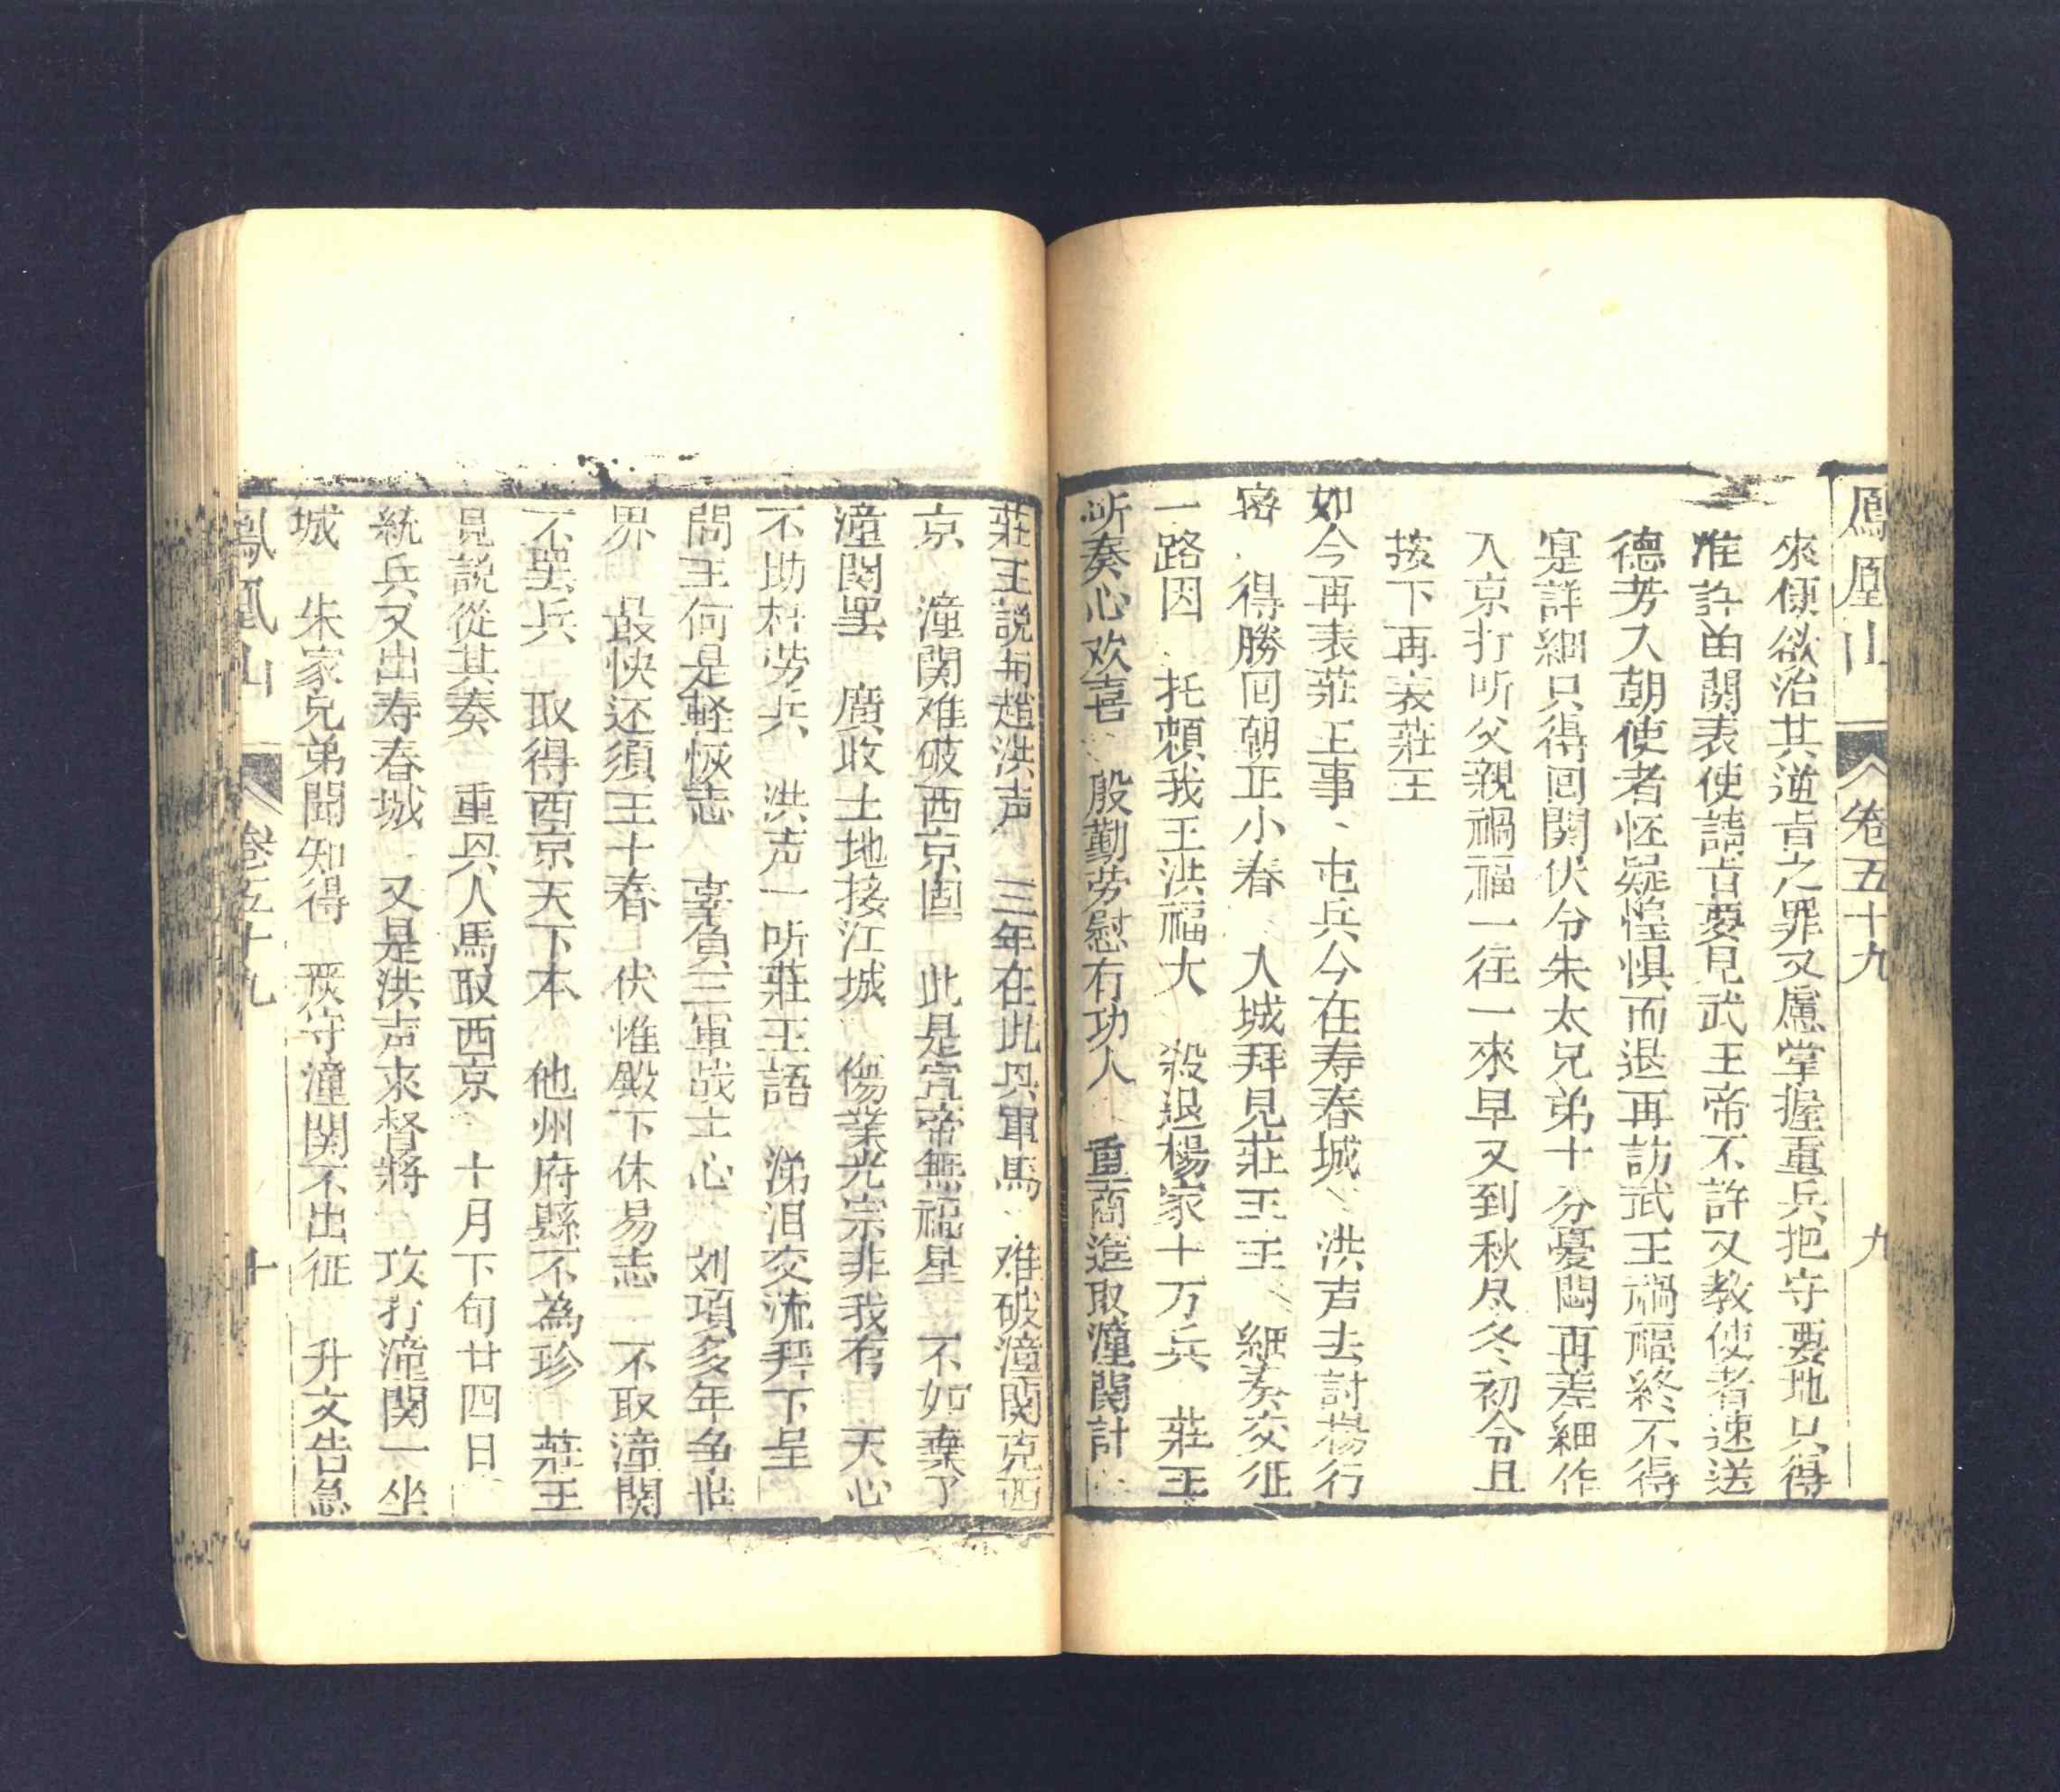 鳳凰山 卷五十九 九
來傾欲治其逆旨之罪又慮掌握重兵把守要地只得
准許苗關表使請旨要見武王帝不許又教使者速送
德芳入朝使者怪疑惶惧而退再訪武王禍福終不得
寔詳細只得回関伏分朱太兄弟十分憂悶再差細作
入京打听父親禍福一往一來早又到秋尽冬初今且
按下再表莊王
如今再表莊王事、屯兵今在寿春城、洪声去討楊行
密 得勝回朝正小春 人城拜見莊王主 細奏交征
一路因 托頼我王洪福大 殺退楊家十万兵 莊王
听奏心欢喜、殷勤劳慰有功人 重商進取潼関計
莊王説与趙洪声 三年在此具軍馬、难破潼関克西
京 潼関难破西京固 此是宣帝無福星 不如棄了
潼関罢 廣收土地接江城 傷業光宗非我有 天心
不助枉劳兵 洪声一听莊王語 涕泪交流拜下呈
問王何是軽恢志 辜負三軍战士心 刘項多年争世
界 最快还須王十春 伏惟殿下休易志 不取潼関
不罢兵 取得西京天下本 他州府縣不為珍 莊王
見説從其奏 重具人馬取西京 十月下旬廿四日
統兵又出寿春城 又是洪声求督將 攻打潼関一坐
城 朱家兄弟聞知得 緊守潼関不出征 升文告急
鳳凰山 卷五十九 十